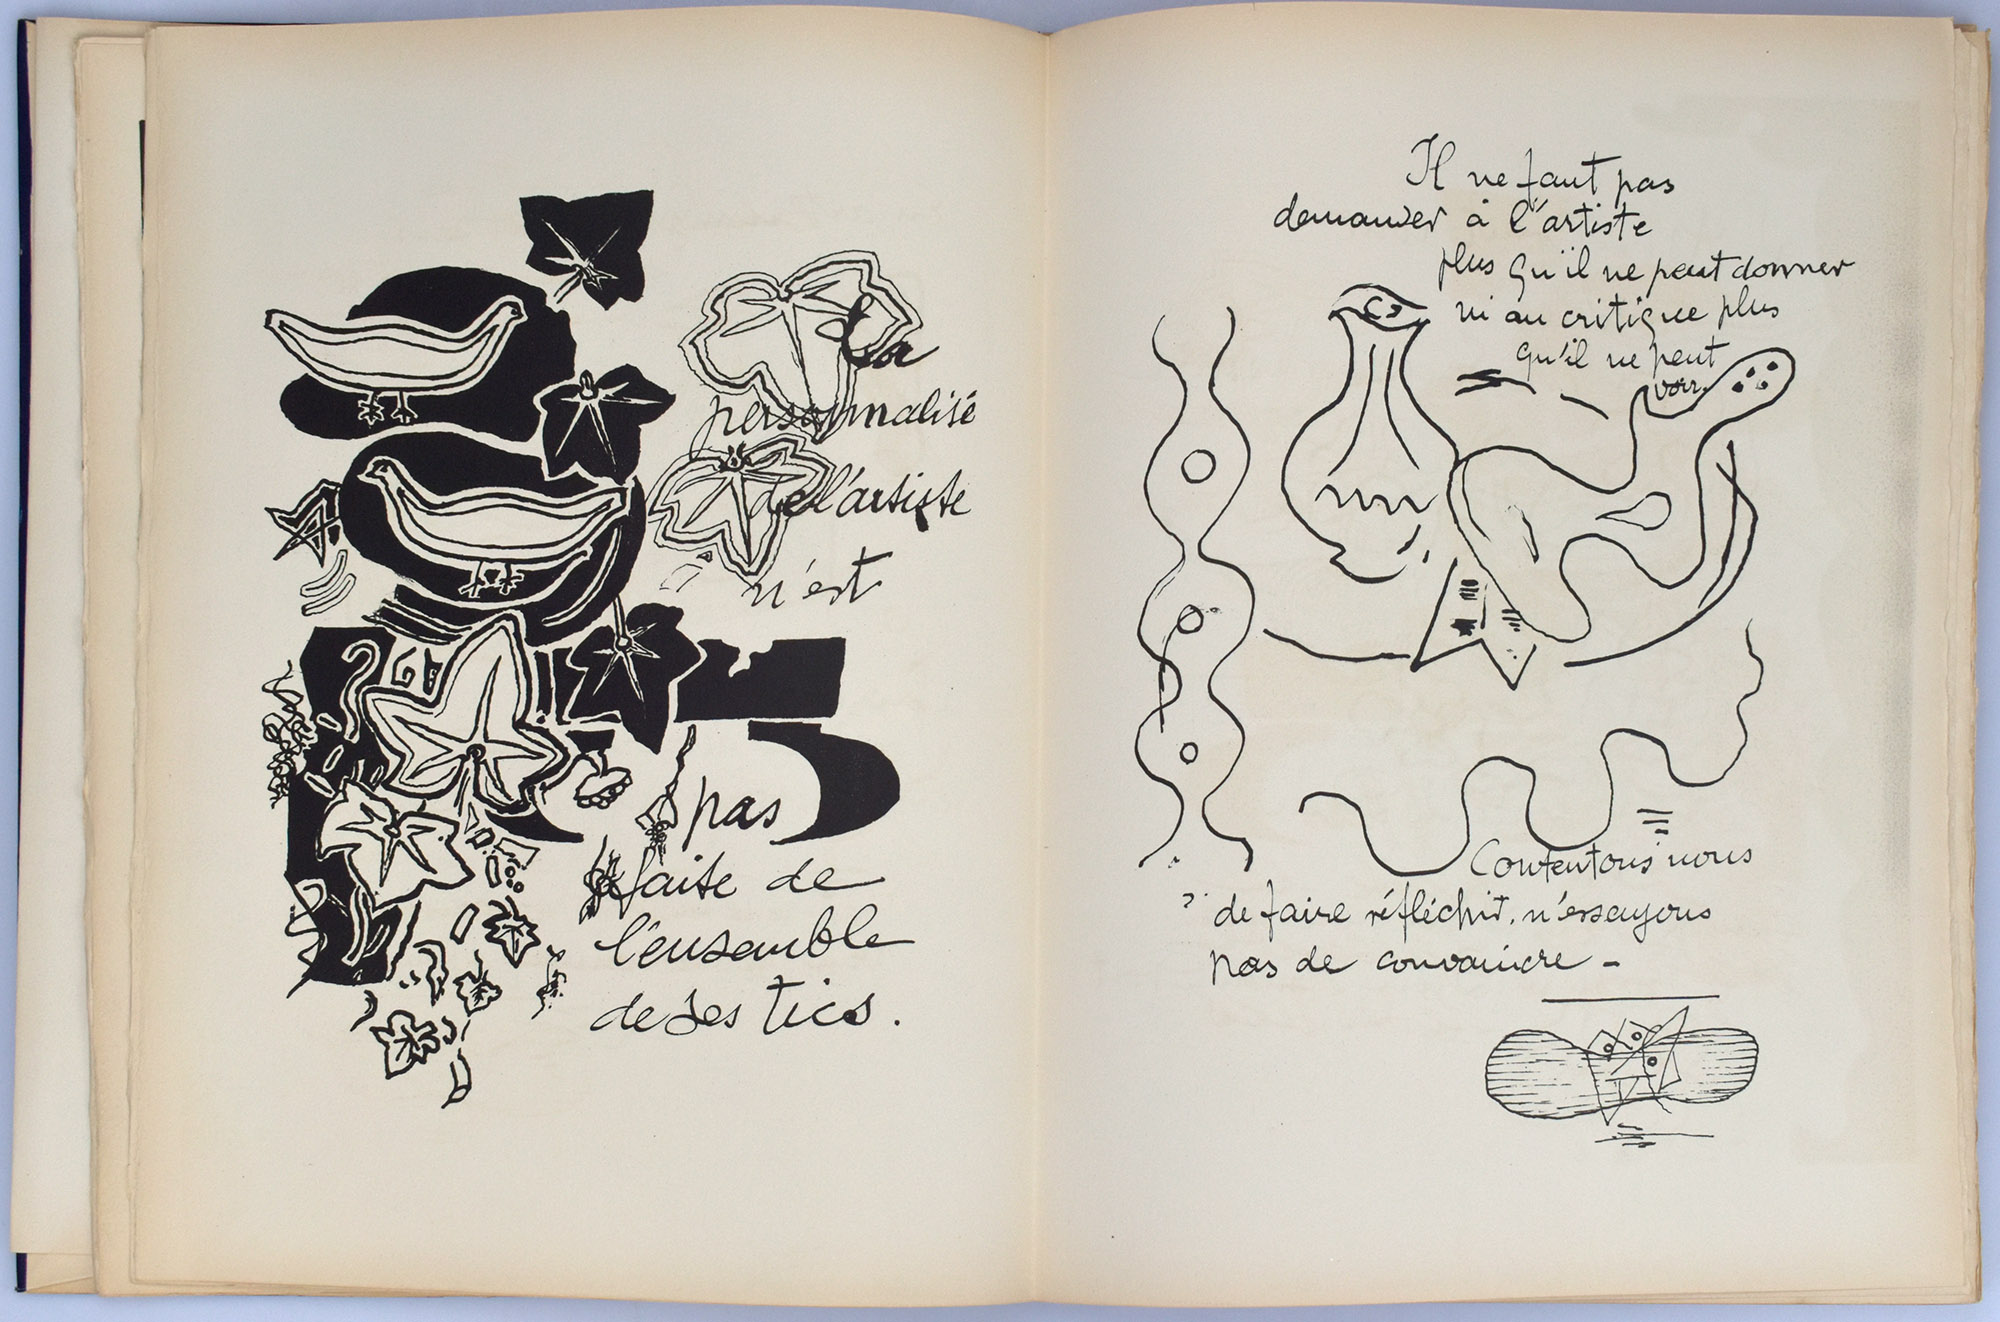 La
personnalité
de l'artiste
n'est
pas
faite de
l'ensemble
de ses tics.
Il ne faut pas
demander à l'artiste
plus qu'il ne peut donner
ni au critique plus
qu'il ne peut
voir.
Contentons nous
de faire réfléchir, n'essayons
pas de convaincre -